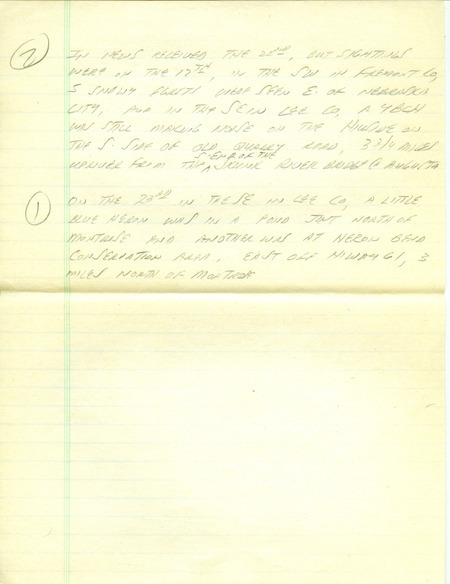 ② IN NEWS RECEIVED THE 22ND, BUT SIGHTINGS
WERE ON THE 17TH, IN THE SW IN FREMONT CO,
5 SNOWY EGRETS WERE SEEN E. OF NEBRASKA
CITY, AND IN THE SE IN LEE CO, A YBCH
WAS STILL MAKING NOISE ON THE HILLSIDE ON
THE S. SIDE OF OLD QUARRY ROAD, 3 3/4 MILES
FROM THE S. END OF THE SKUNK RIVER BRIDGE @ AUGUSTA
① ON THE 23RD IN THE SE IN LEE CO, A LITTLE
BLUE HERON WAS IN A POND JUST NORTH OF
MONTROSE AND ANOTHER WAS AT HERON BEND
CONSERVATION AREA, EAST OFF HIWAY 61, 3
MILES NORTH OF MONTROSE